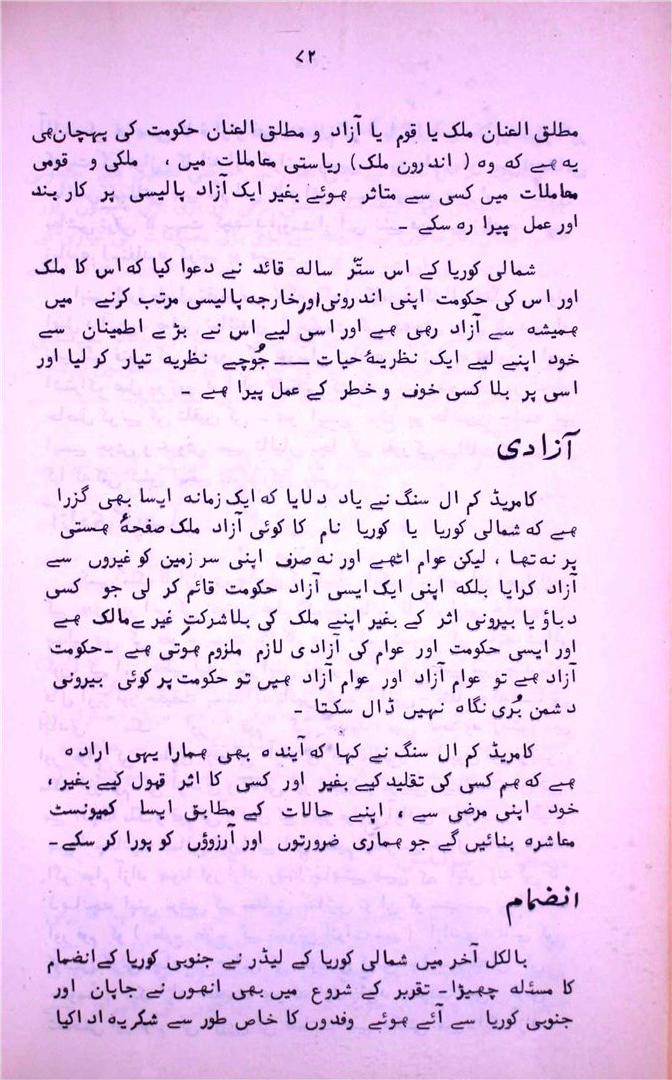 ۷۲
مطلق العنان ملک یا قوم یا آزاد و مطلق العنان حکومت کی پہچان ہی
یہ ہے کہ وہ ( اندرون ملک ) ریاستی معاملات میں ، ملکی و قومی
معاملات میں کسی سے متاثر ہوئے بغیر ایک آزاد پالیسی پر کار بند
اور عمل پیرا رہ سکے ۔
شمالی کوریا کے اس ستّر سالہ قائد نے دعوا کیا کہ اس کا ملک
اور اس کی حکومت اپنی اندرونی اور خارجہ پالیسی مرتب کرنے میں
ہمیشہ سے آزاد رہی ہے اور اسی لیے اس نے بڑے اطمینان سے
خود اپنے لیے ایک نظریۂ حیات ــــ جُوچے نظریہ تیار کر لیا اور
اسی پر بلا کسی خوف و خطر کے عمل پیرا ہے ۔
آزادی
کامریڈ کم ال سنگ نے یاد دلایا کہ ایک زمانہ ایسا بھی گزرا
ہے کہ شمالی کوریا یا کوریا نام کا کوئی آزاد ملک صفحۂ ہستی
پر نہ تھا ، لیکن عوام اٹھے اور نہ صرف اپنی سر زمین کو غیروں سے
آزاد کرایا بلکہ اپنی ایک ایسی آزاد حکومت قائم کر لی جو کسی
دباؤ یا بیرونی اثر کے بغیر اپنے ملک کی بلا شرکتِ غیرے مالک ہے
اور ایسی حکومت اور عوام کی آزادی لازم ملزوم ہوتی ہے ۔ حکومت
آزاد ہے تو عوام آزاد اور عوام آزاد ہیں تو حکومت پر کوئی بیرونی
دشمن بُری نگاہ نہیں ڈال سکتا ۔
کامریڈ کم ال سنگ نے کہا کہ آیندہ بھی ہمارا یہی ارادہ
ہے کہ ہم کسی کی تقلید کیے بغیر اور کسی کا اثر قبول کیے بغیر ،
خود اپنی مرضی سے ، اپنے حالات کے مطابق ایسا کمیونسٹ
معاشرہ بنائیں گے جو ہماری ضرورتوں اور آرزوؤں کو پورا کر سکے ۔
انضمام
بالکل آخر میں شمالی کوریا کے لیڈر نے جنوبی کوریا کے انضمام
کا مسئلہ چھیڑا ۔ تقریر کے شروع میں بھی انھوں نے جاپان اور
جنوبی کوریا سے آئے ہوئے وفدوں کا خاص طور سے شکریہ ادا کیا